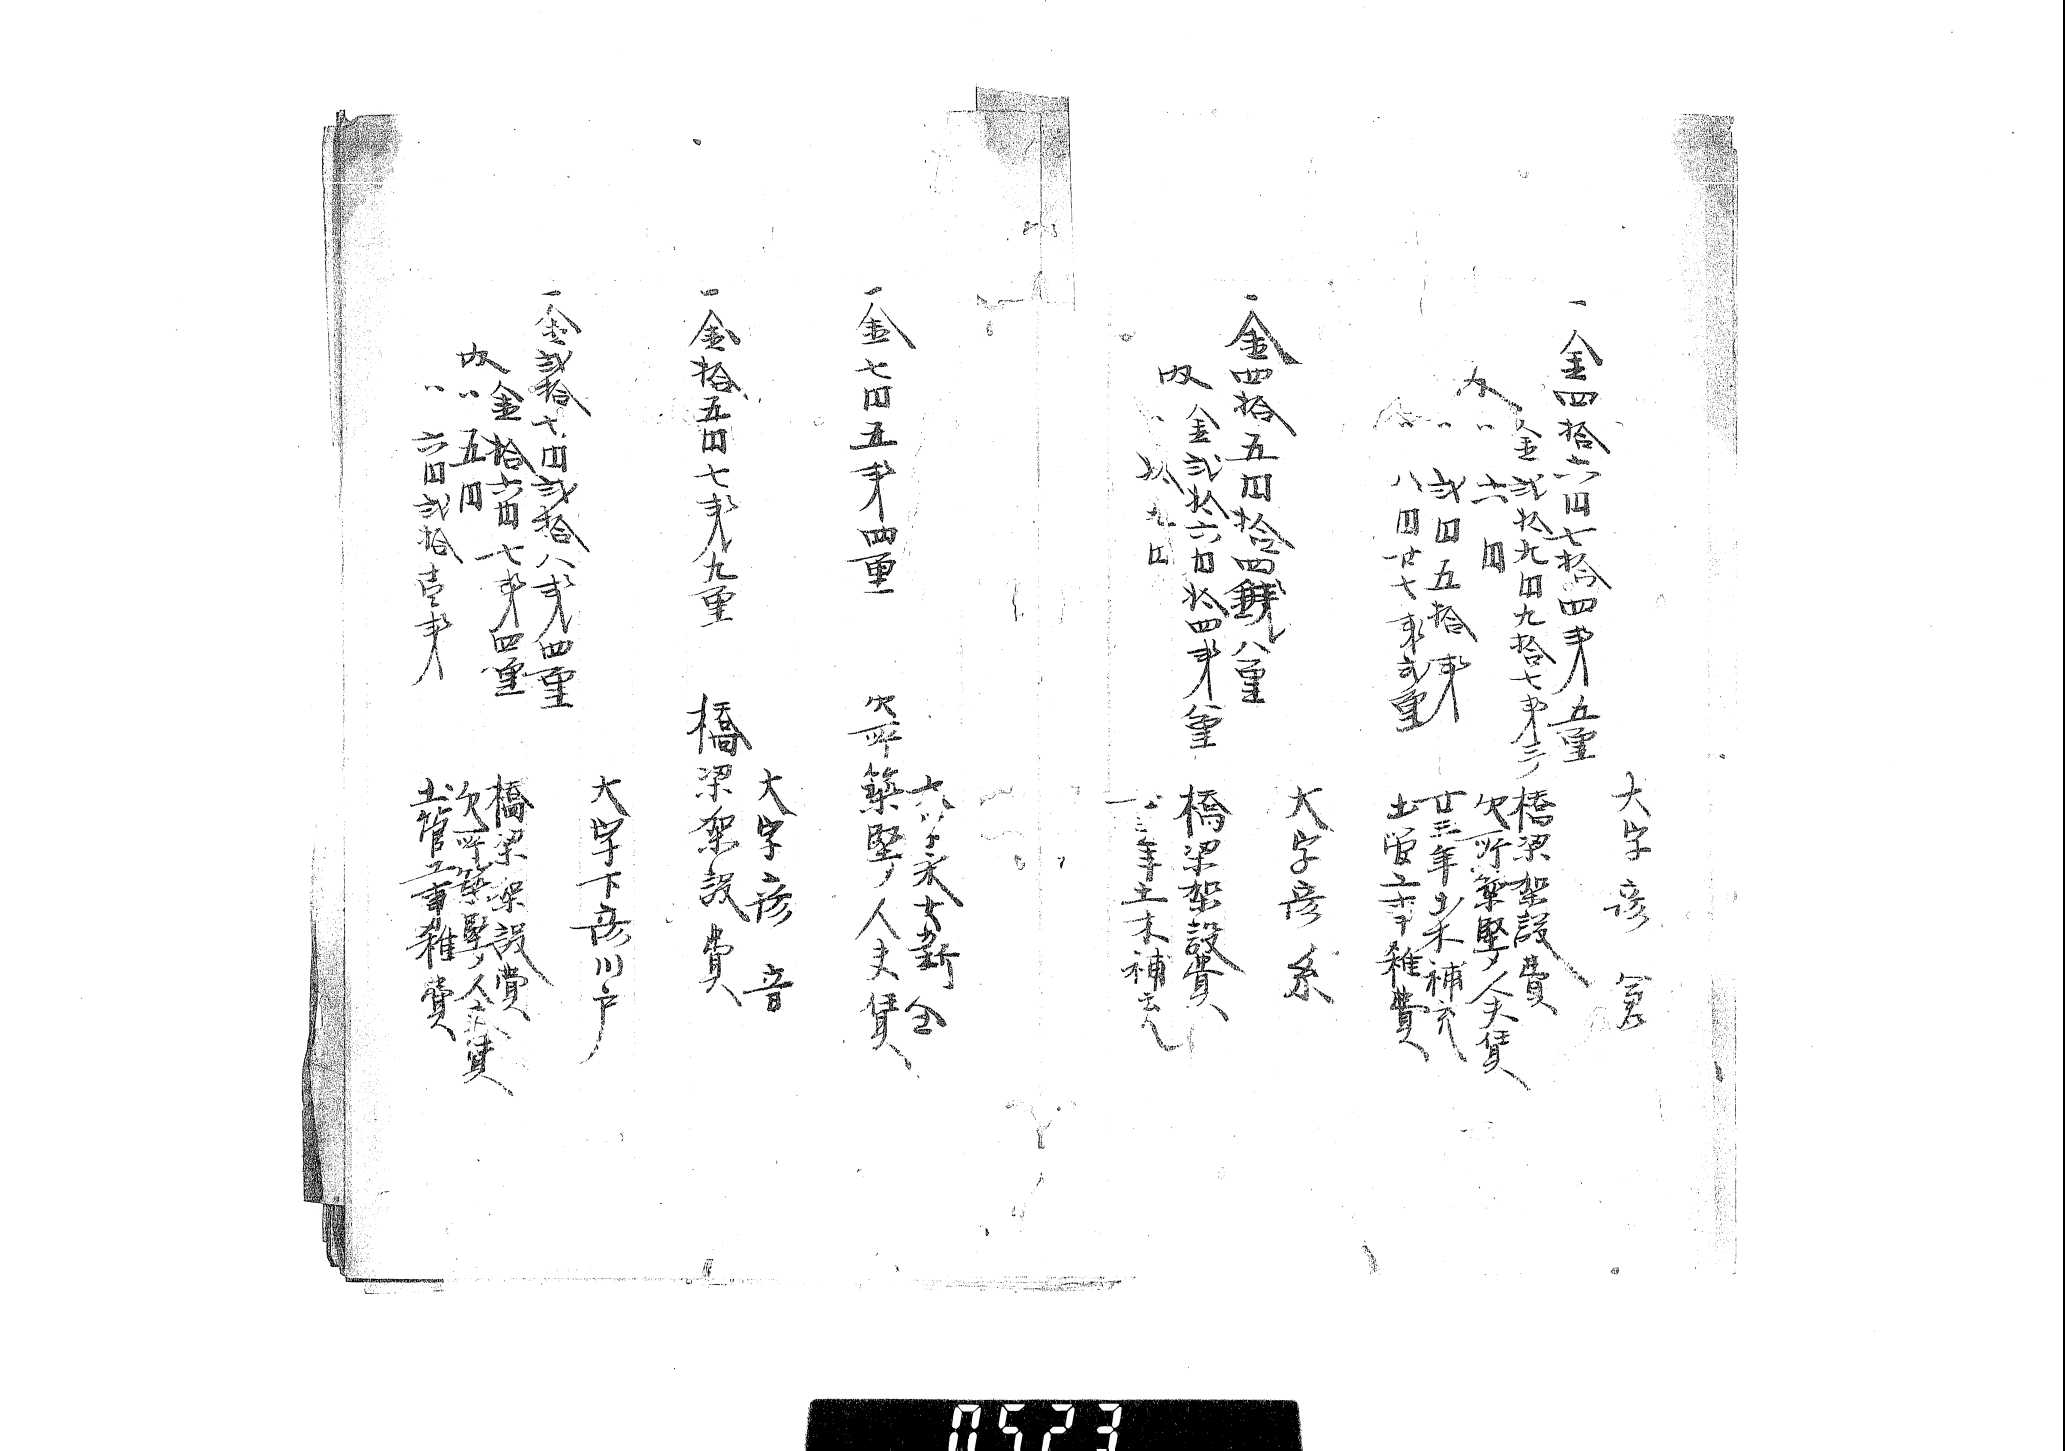 大字彦倉
一金四拾六円七拾四銭五厘
内金弐拾九円九拾七銭三 橋梁架設費
〃六円 欠所築堅ノ人夫賃
〃弐円五拾銭 廿三年土木補充
〃八円廿七銭弐厘 土管工事雑費
大字彦糸
一金四拾五円拾四銭八厘
内金弐拾六円拾四銭八厘 橋梁架設費
〃拾九円 廿三年土木補充
一金七円五銭四厘 欠所築堅ノ人夫賃
大字彦音
一金拾五円七銭九厘 橋梁架設費
大字下彦川戸
一金弐拾七円弐拾八銭四厘
内金拾六円七銭四厘 橋梁架設費
〃五円 欠所築堅ノ人夫賃
〃六円弐拾壱銭 土管工事雑費
0523